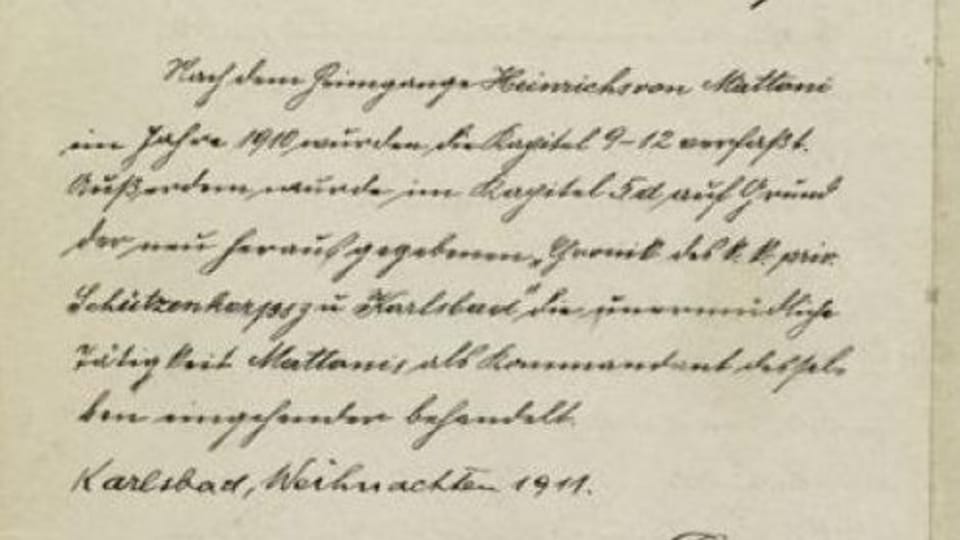 Nach dem Heimgange Heinrichs von Mattoni
im Jahre 1910 wurden die Kapitel 9–12 verfaßt.
Außerdem wurde im Kapitel 5d auf Grund
der neu herausgegebenen „Chronik des k. k. priv.
Schützenkorps zu Karlsbad“ die unermüdliche
Tätigkeit Mattonis als Kommandant dessel-
ben eingehender behandelt.
Karlsbad, Weihnachten 1911.